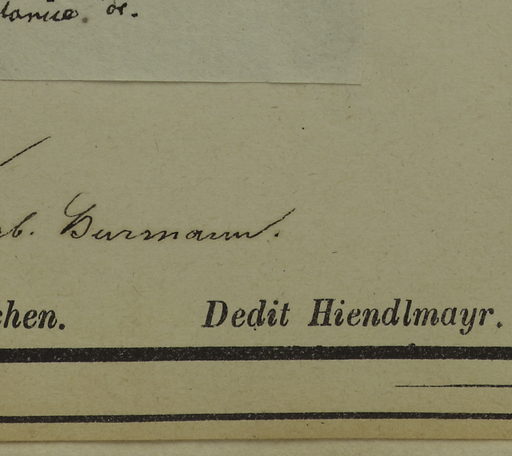 &c.
rb. Burmann.
chen. Dedit Hiendlmayr.